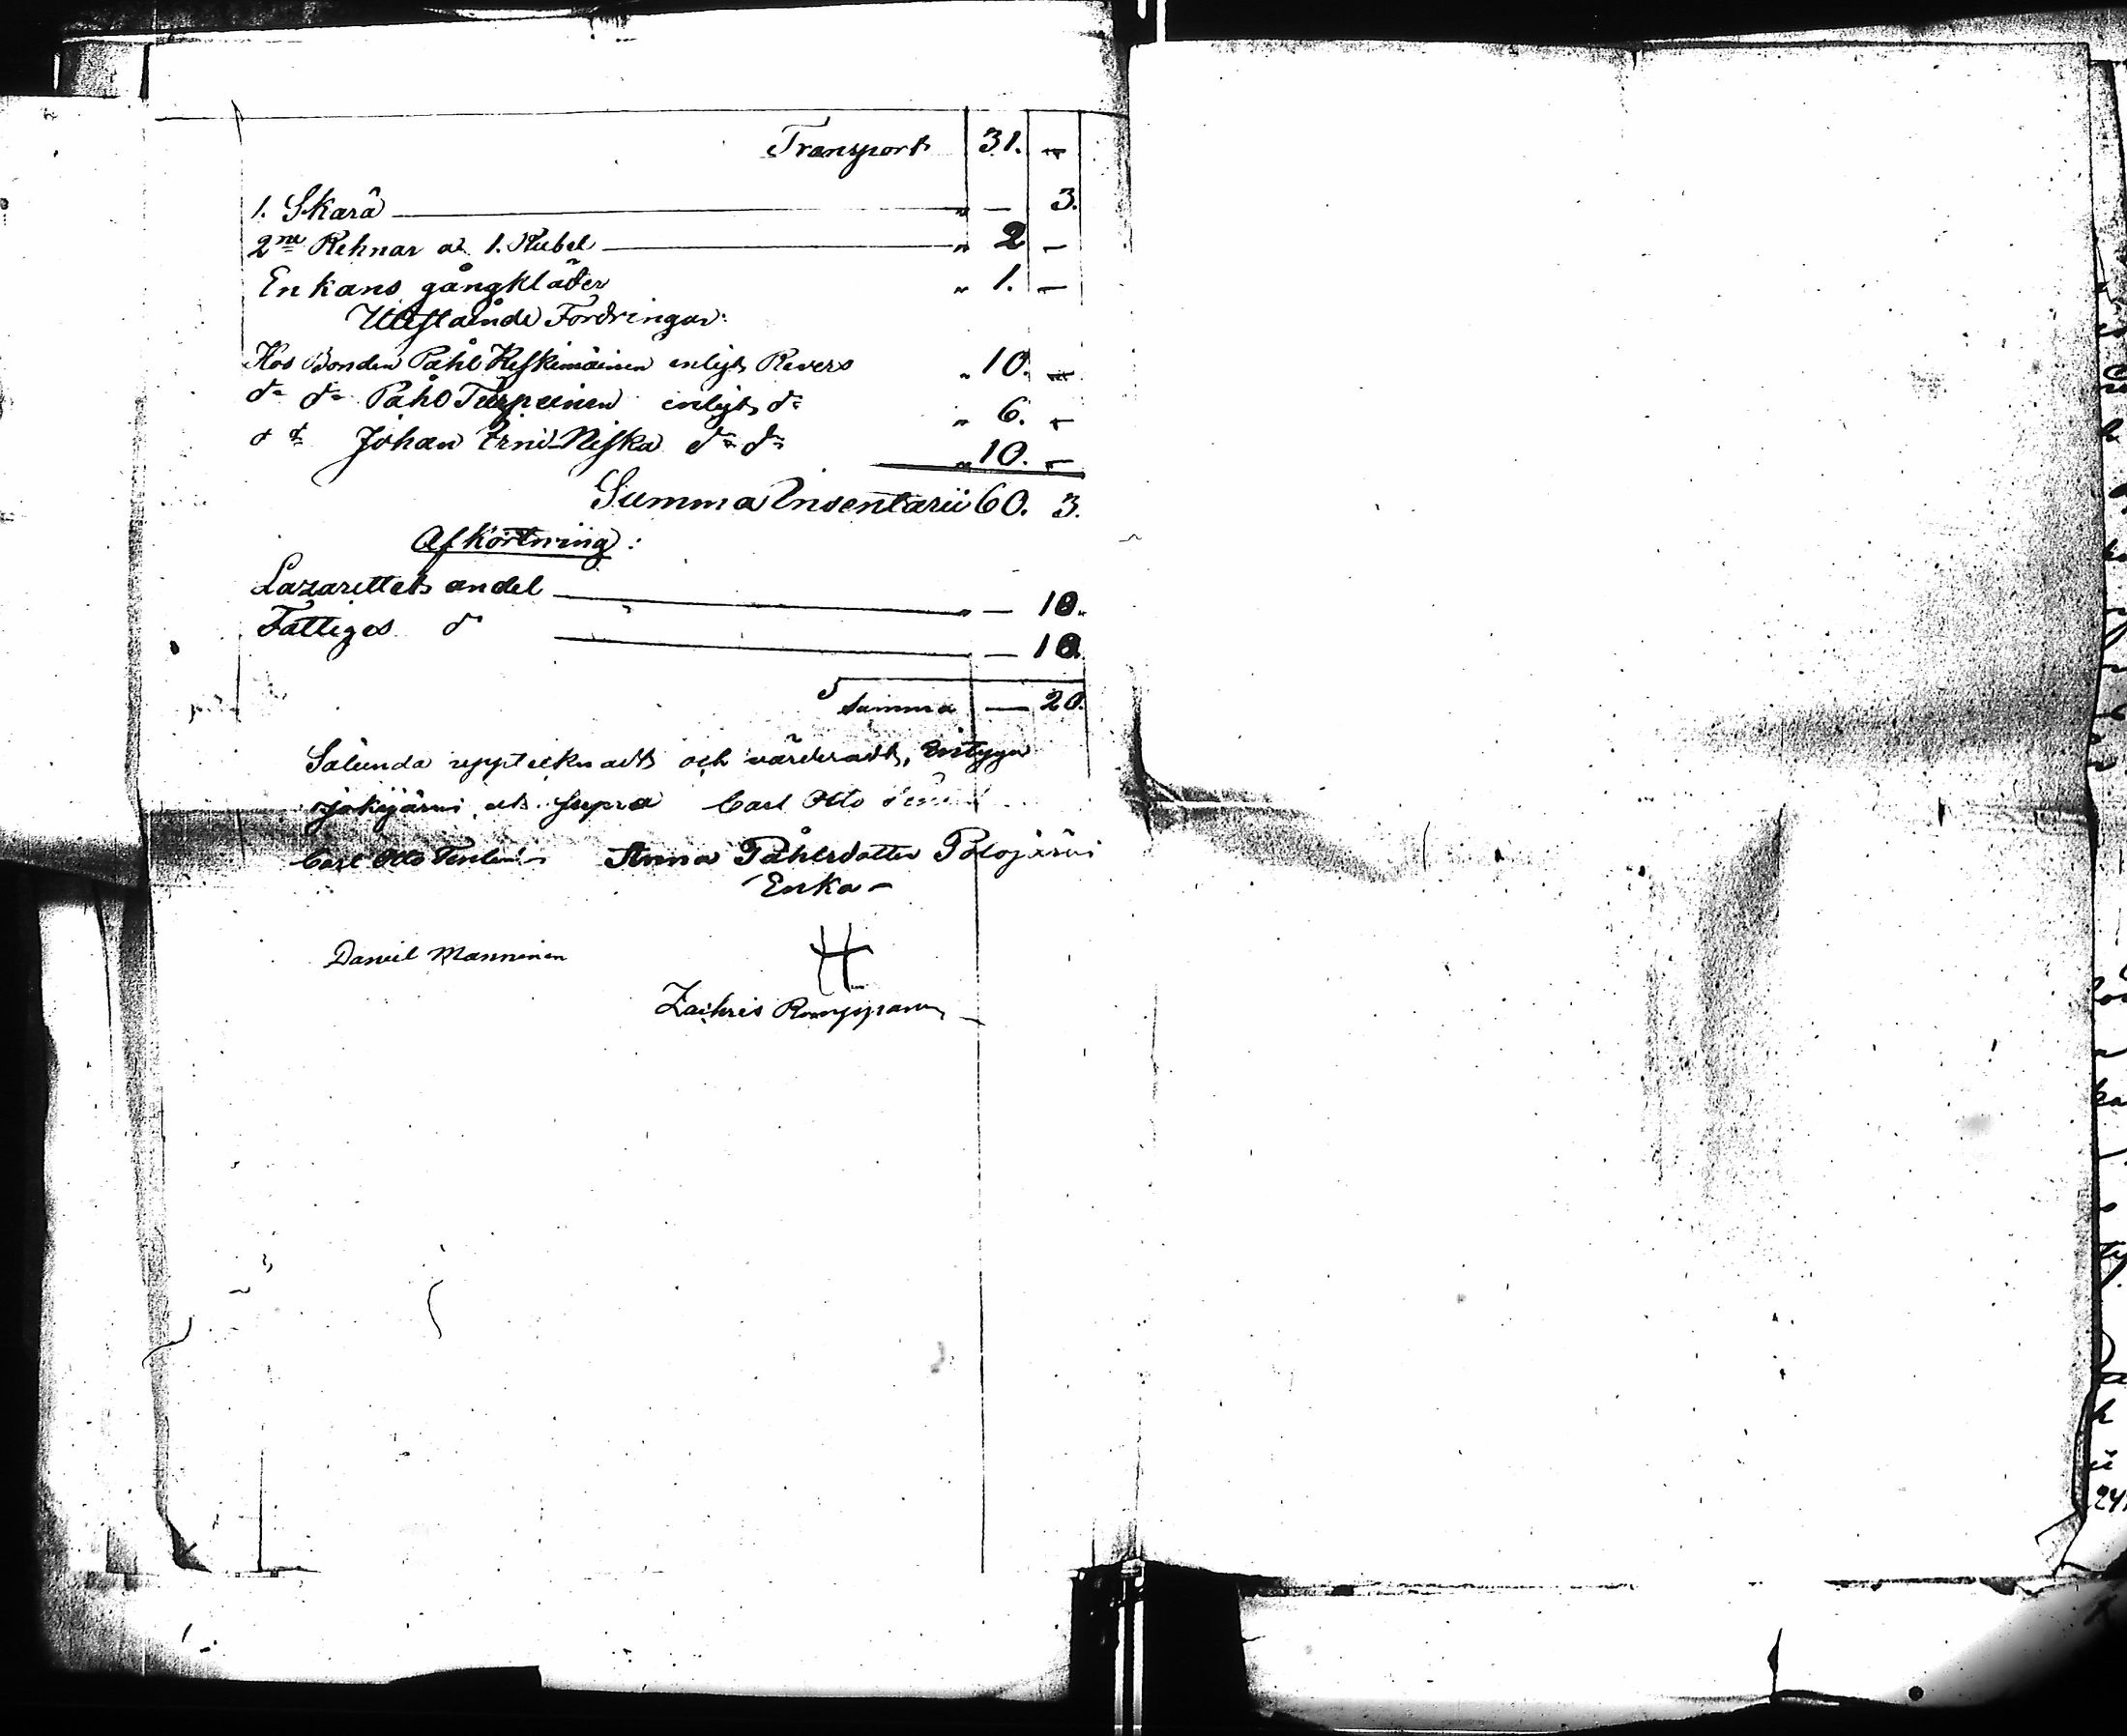 Transport 31. „
1. Skarä „ — 3.
2ne Rehnar a 1. Rubel „ 2 —
Enkans gångkläder „ 1. —
Utestående Fordringar:
Hos Bonden Påhl Keskimäinen enligt Revers „ 10. „
do do Påhl Turpeinen enligt do „ 6. „
do do Johan Erns Niska do do „ 10. „
Summa Inventarii 60. 3.
Afkortning:
Lazarettets andel „ — 10.
Fattiges do — 10.
Summa — 20.
Sålunda upptecknadt och värderadt, Betyga
ut supra Carl Otto
Carl Otto Anna Påhlsdotter Polojärvi
Enka
Daniel Manninen
Zachris Romppanen